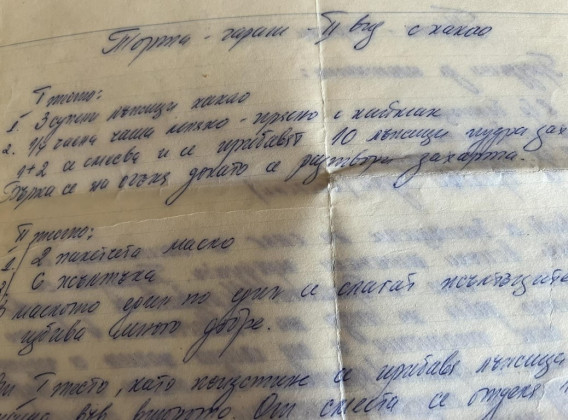 Торта - гараш - II вид с какао
I тесто:
1. 3 супени лъжици какао
2. 1/2 чаена чаша мляко - прясно с
1+2 се смесва и се прибавят 10 лъжици пудра зах
Бърка се на огъня докато се разтвори захарта.
II тесто:
1. 2 пакетчета масло
2. 6 жълтъка
В маслото един по един се слагат жълтъците
убива много добре.
I тесто, като изстине се прибавя лъжица
във второто. От сместа се отделя